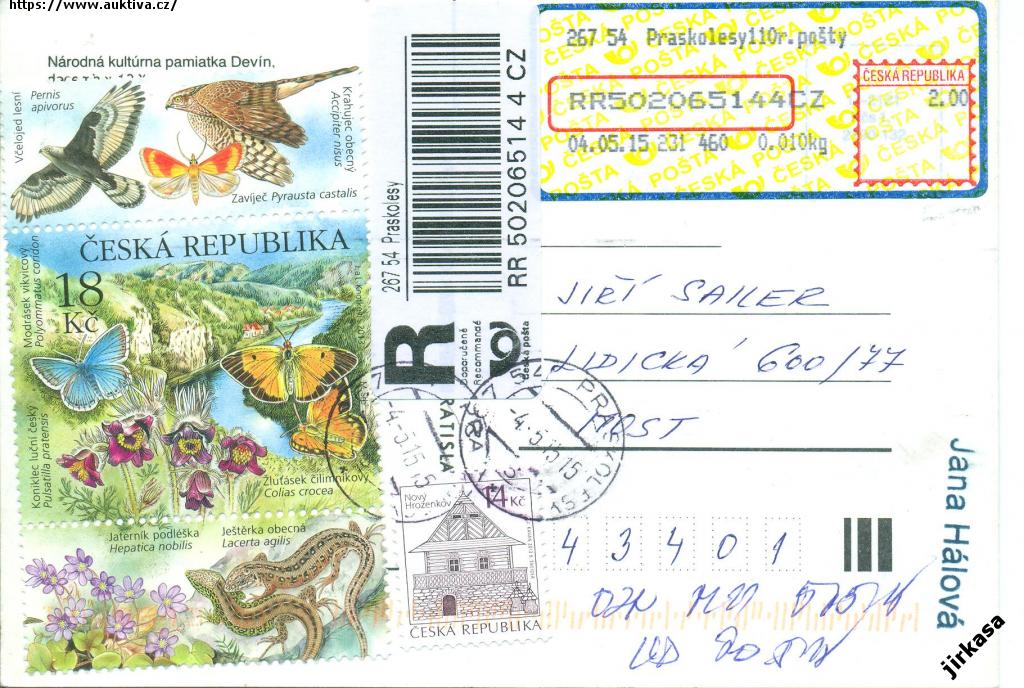 https://www.auktiva.cz/
Národná kultúrna pamiatka Devín,
Včelojed lesní
Pernis
apivorus
Krahujec obecný
Accipiter nisus
Zavíječ Pyrausta castalis
ČESKÁ REPUBLIKA
18
Kč
Modrásek vikvicový
Polyommatus coridon
Koniklec luční český
Pulsatilla pratensis
Žluťásek čilimníkový
Colias crocea
Jaterník podléška
Hepatica nobilis
Ještěrka obecná
Lacerta agilis
267 54 Praskolesy
RR 502065144 CZ
R
Doporučené
Recommandé
Česká pošta
ČESKÁ POŠTA
267 54 Praskolesy110r.pošty
RR502065144CZ
ČESKÁ REPUBLIKA
2.00
04.05.15 231 460 0.010kg
JIŘÍ SAILER
LIDICKÁ 600/77
MOST
43401
RATISLA
-4.5.15
15
Nový
Hrozenkov
14 Kč
ČESKÁ REPUBLIKA
Jana Hálová
jirkasa